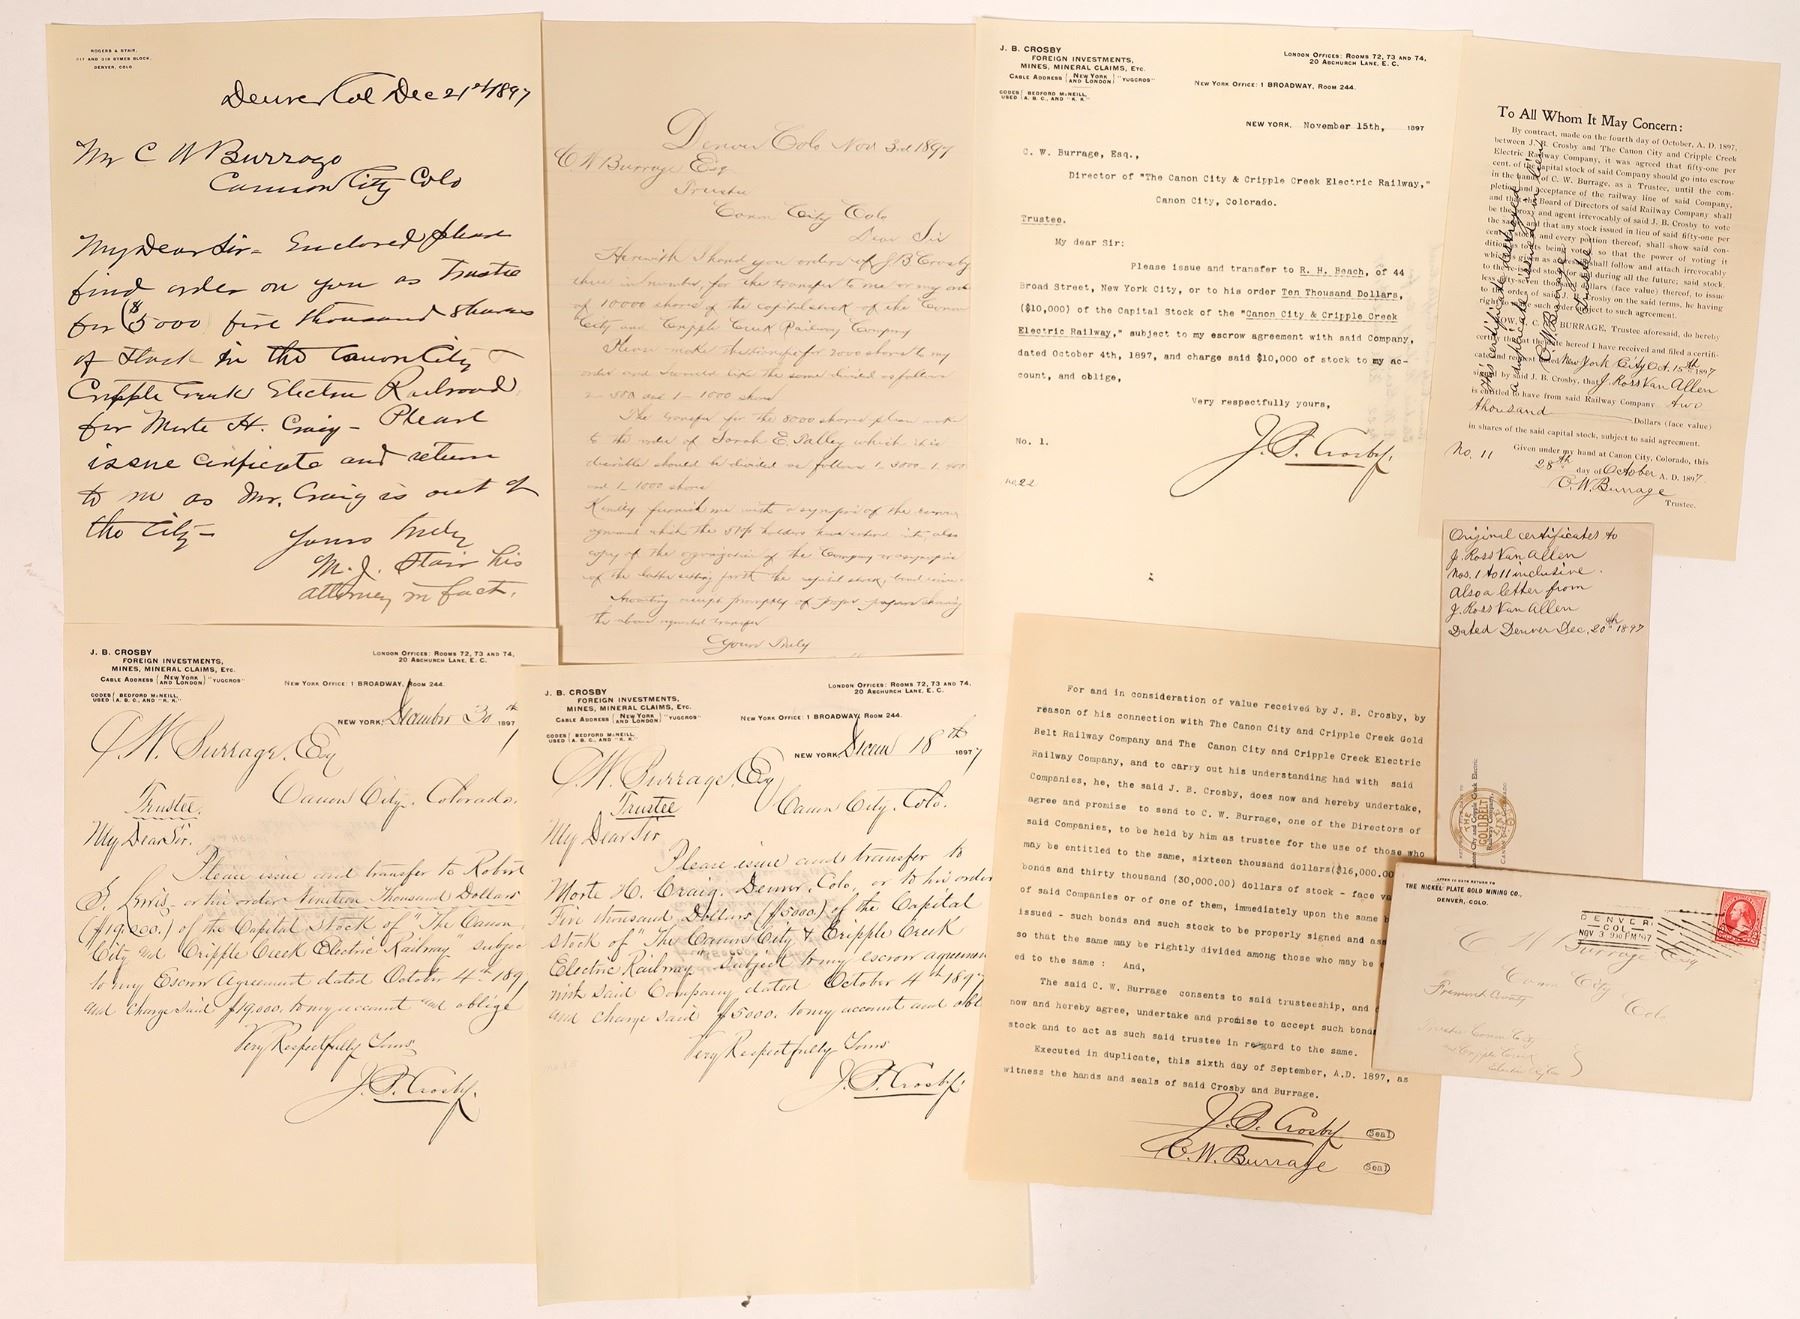 ROGERS & STAIR,
317 AND 318 SYMES BLOCK,
DENVER, COLO.
Denver Col Dec 21st 1897
Mr C W Burrage
Cannon City Colo
My Dear Sir - Enclosed please
find order on you as Trustee
for ($5000) five thousand shares
of stock in the Canon City
Cripple Creek Electric Railroad
for Morte H. Craig - Please
issue certificate and return
to me as Mr. Craig is out of
the City -
Yours truly
M. J. Stair his
attorney in fact.
Denver Colo Nov 3rd 1897
C. W. Burrage Esq
Trustee
Canon City Colo
Dear Sir
Herewith I hand you orders of J B Crosby
three in number, for the transfer to me or my order
of 10000 shares of the capital stock of the Canon
City and Cripple Creek Railway Company
Please make the transfer for 2000 shares to my
order and I would like the same divided as follows
2 - 500 and 1 - 1000 shares
The transfer for the 8000 shares please make
to the order of Sarah E. Talley which it is
desirable should be divided as follows
and 1 - 1000 shares
Kindly furnish me with a synopsis of the
agreement which the stock holders have entered into, also
copy of the organization of the Company or a synopsis
of the latter setting forth the capital stock, bond issue
Awaiting receipt promptly of proper papers showing
the above requested transfer
Yours Truly
J. B. CROSBY
FOREIGN INVESTMENTS,
MINES, MINERAL CLAIMS, ETC.
CABLE ADDRESS { NEW YORK AND LONDON } "YUGCROS"
CODES USED { BEDFORD McNEILL, A. B. C., AND "K. K."
LONDON OFFICES: ROOMS 72, 73 AND 74,
20 ABCHURCH LANE, E. C.
NEW YORK OFFICE: 1 BROADWAY, ROOM 244.
NEW YORK, November 15th, 1897
C. W. Burrage, Esq.,
Director of "The Canon City & Cripple Creek Electric Railway,"
Canon City, Colorado.
Trustee.
My dear Sir:
Please issue and transfer to R. H. Beach, of 44
Broad Street, New York City, or to his order Ten Thousand Dollars,
($10,000) of the Capital Stock of the "Canon City & Cripple Creek
Electric Railway," subject to my escrow agreement with said Company,
dated October 4th, 1897, and charge said $10,000 of stock to my ac-
count, and oblige,
Very respectfully yours,
No. 1.
J. B. Crosby.
no. 22
To All Whom It May Concern:
By contract, made on the fourth day of October, A. D. 1897,
between J. B. Crosby and The Canon City and Cripple Creek
Electric Railway Company, it was agreed that fifty-one per
cent. of the capital stock of said Company should go into escrow
in the hands of C. W. Burrage, as a Trustee, until the com-
pletion and acceptance of the railway line of said Company,
and that the Board of Directors of said Railway Company shall
be the proxy and agent irrevocably of said J. B. Crosby to vote
the same, and that any stock issued in lieu of said fifty-one per
cent. stock and every portion thereof, shall show said con-
ditions as to its being voted, so that the power of voting it
which is given as aforesaid shall follow and attach irrevocably
to the reissued stock for and during all the future; said stock,
less forty-seven thousand dollars (face value) thereof, to issue
to the order of said J. B. Crosby on the said terms, he having
right to issue such order subject to such agreement.
NOW, I, C. W. BURRAGE, Trustee aforesaid, do hereby
certify that at the date hereof I have received and filed a certifi-
cate and request dated New York City Oct. 15th 1897
signed by said J. B. Crosby, that J. Ross Van Allen
is entitled to have from said Railway Company two
thousand Dollars (face value)
in shares of the said capital stock, subject to said agreement.
No. 11 Given under my hand at Canon City, Colorado, this
28th day of October A. D. 1897.
C. W. Burrage
Trustee.
This certificate destroyed
a duplicate issued in lieu
C. W. Burrage
Trustee
Original certificates to
J. Ross Van Allen
Nos. 1 to 11 inclusive.
Also a letter from
J. Ross Van Allen
Dated Denver Dec. 20th 1897
THE
GOLD BELT
LINE
Canon City and Cripple Creek Electric
Railway Company,
J. B. CROSBY
FOREIGN INVESTMENTS,
MINES, MINERAL CLAIMS, ETC.
CABLE ADDRESS { NEW YORK AND LONDON } "YUGCROS"
CODES USED { BEDFORD McNEILL, A. B. C., AND "K. K."
LONDON OFFICES: ROOMS 72, 73 AND 74,
20 ABCHURCH LANE, E. C.
NEW YORK OFFICE: 1 BROADWAY, ROOM 244.
NEW YORK, December 30th 1897
C. W. Burrage, Esq
Trustee.
Canon City, Colorado.
My Dear Sir.
Please issue and transfer to Robert
S. Lewis - or his order Nineteen Thousand Dollars
($19,000.) of the Capital Stock of "The Canon
City and Cripple Creek Electric Railway" subject
to my Escrow Agreement dated October 4th 1897
and charge said $19,000. to my account and oblige
Very Respectfully Yours,
J. B. Crosby.
J. B. CROSBY
FOREIGN INVESTMENTS,
MINES, MINERAL CLAIMS, ETC.
CABLE ADDRESS { NEW YORK AND LONDON } "YUGCROS"
CODES USED { BEDFORD McNEILL, A. B. C., AND "K. K."
LONDON OFFICES: ROOMS 72, 73 AND 74,
20 ABCHURCH LANE, E. C.
NEW YORK OFFICE: 1 BROADWAY, ROOM 244.
NEW YORK, 18th 1897
C. W. Burrage, Esq
Trustee
Canon City, Colo.
My Dear Sir
Please issue and transfer to
Morte H. Craig, Denver, Colo, or to his order
Five thousand Dollars ($5000.) of the Capital
Stock of "The Canon City & Cripple Creek
Electric Railway" subject to my escrow agreemen
with said Company dated October 4th 1897
and charge said $5000. to my account and obl
Very Respectfully Yours
J. B. Crosby.
For and in consideration of value received by J. B. Crosby, by
reason of his connection with The Canon City and Cripple Creek Gold
Belt Railway Company and The Canon City and Cripple Creek Electric
Railway Company, and to carry out his understanding had with said
Companies, he, the said J. B. Crosby, does now and hereby undertake,
agree and promise to send to C. W. Burrage, one of the Directors of
said Companies, to be held by him as trustee for the use of those who
may be entitled to the same, sixteen thousand dollars($16,000.00
bonds and thirty thousand (30,000.00) dollars of stock - face va
of said Companies or of one of them, immediately upon the same b
issued - such bonds and such stock to be properly signed and ass
so that the same may be rightly divided among those who may be
ed to the same : And,
The said C. W. Burrage consents to said trusteeship, and
now and hereby agree, undertake and promise to accept such bond
stock and to act as such said trustee in regard to the same.
Executed in duplicate, this sixth day of September, A.D. 1897, as
witness the hands and seals of said Crosby and Burrage.
J. B. Crosby Seal
C. W. Burrage Seal
AFTER 10 DAYS RETURN TO
THE NICKEL PLATE GOLD MINING CO.,
DENVER, COLO.
DENVER
COL.
NOV 3 9 30 PM '97
C W Burrage Esq
Canon City
Fremont County
Colo
Trustee Canon City
and Cripple Creek